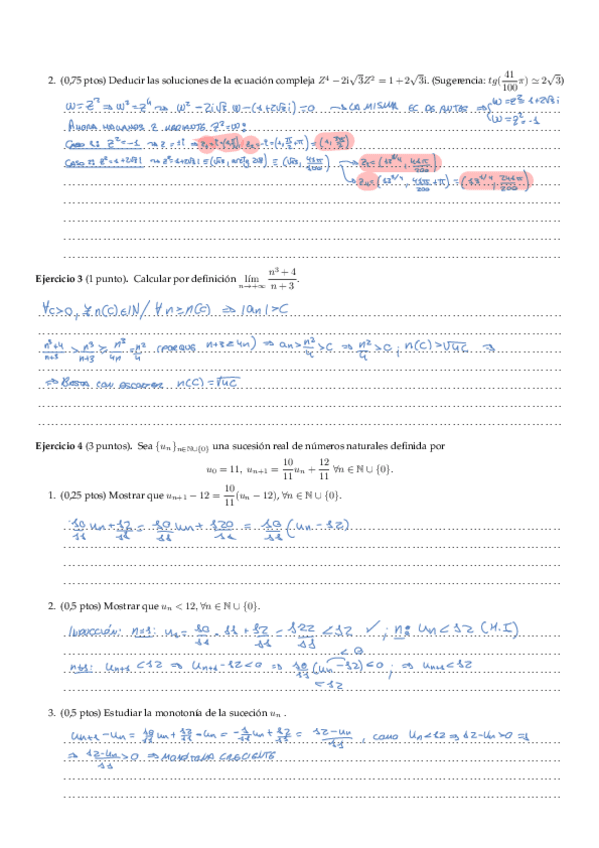 2. (0,75 ptos) Deducir las soluciones de la ecuación compleja Z⁴ − 2i√3Z² = 1 + 2√3i. (Sugerencia: tg(41/100 π) ≃ 2√3)
W = Z² ⇒ W² = Z⁴ ⇝ W² − 2i√3 W − (1+2√3i) = 0 ⇝ LA MISMA EC DE ANTES ⇒ { W = Z² = 1+2√3i
W = Z² = −1
AHORA HACEMOS Z MEDIANTE Z² = W:
CASO 1: Z² = −1 ⇝ Z = ±i ⇒
CASO 2: Z² = 1+2√3i ⇝ Z² = 1+2√3i ≡ (√13, arctg 2√3) ≡ (√13, 41π/100) → Z₃ = (13^1/4, 41π/200)
→ Z₄ = (13^1/4, 41π/200 + π) = (13^1/4, 241π/200)
Ejercicio 3 (1 punto). Calcular por definición lím n→+∞ n³ + 4 / n + 3.
∀C>0, ∃ n(C) ∈ ℕ / ∀ n ≥ n(C) ⇒ |an| > C
n³+4/n+3 > n³/n+3 ≥ n³/4n = n²/4 (PORQUE n+3 ≤ 4n) ⇒ an > n²/4 > C ⇒ n²/4 > C ; n(C) > √4C ⇒
⇒ BASTA CON ESCOGER n(C) = √4C
Ejercicio 4 (3 puntos). Sea {uₙ}n∈ℕ∪{0} una sucesión real de números naturales definida por
u₀ = 11, uₙ₊₁ = 10/11 uₙ + 12/11 ∀n ∈ ℕ ∪ {0}.
1. (0,25 ptos) Mostrar que uₙ₊₁ − 12 = 10/11 (uₙ − 12), ∀n ∈ ℕ ∪ {0}.
10/11 un + 12/11 = 10/11 un + 120/11 = 10/11 (un − 12)
2. (0,5 ptos) Mostrar que uₙ < 12, ∀n ∈ ℕ ∪ {0}.
INDUCCIÓN: n=1: u₁ = 10/11 · 11 + 12/11 = 122/11 < 12 ✓ ; n: un < 12 (H.I)
n+1: un+1 < 12 ⇒ un+1 − 12 < 0 ⇒ 10/11 (un − 12) < 0 ; ⇒ un+1 < 12
3. (0,5 ptos) Estudiar la monotonía de la suceción uₙ .
un+1 − un = 10/11 un + 12/11 − un = −1/11 un + 12/11 = 12−un/11 , como un<12 ⇒ 12−un>0 ⇒
⇒ 12−un/11 > 0 ⇒ MONÓTONA CRECIENTE